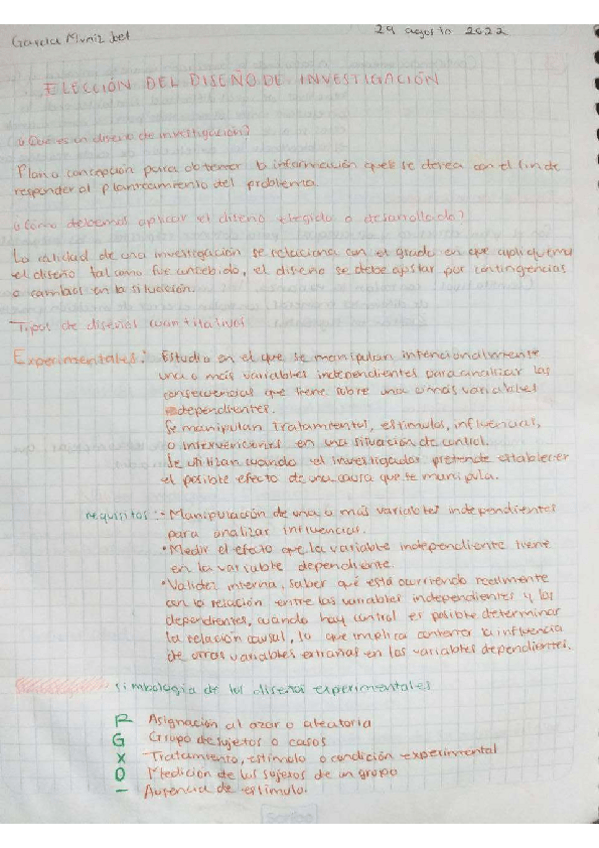 Garcia Muniz Joel 29 agosto 2022
ELECCIÓN DEL DISEÑO DE INVESTIGACIÓN
¿Que es un diseño de investigación?
Plan o concepción para obtener la información que se desea con el fin de
responder al planteamiento del problema.
¿Como debemos aplicar el diseño elegido o desarollado?
La calidad de una investigación se relaciona con el grado en que apliquemos
el diseño tal como fue concebido, el diseño se debe ajustar por contingencias
o cambios en la situación.
Tipos de diseños cuantitativos
Experimentales: Estudio en el que se manipulan intencionalmente
una o más variables independientes para analizar las
consecuencias que tiene sobre una o mas variables
dependientes.
Se manipulan tratamientos, estimulos, influencias,
o intervenciones en una situación de control.
Se utilizan cuando el investigador pretende establecer
el posible efecto de una causa que se manipula.
requisitos: • Manipulación de una o más variables independientes
para analizar influencias.
• Medir el efecto que la variable independiente tiene
en la variable dependiente.
• Validez interna, saber qué está ocurriendo realmente
con la relación entre las variables independientes y las
dependientes, cuando hay control es posible determinar
la relación causal, lo que implica contener la influencia
de otras variables extrañas en las variables dependientes.
Simbología de los diseños experimentales
R Asignación al azar o aleatoria
G Grupo de sujetos o casos
X Tratamiento, estimulo o condición experimental
O Medicion de los sujetos de un grupo
— Ausencia de estimulo.
Scribe